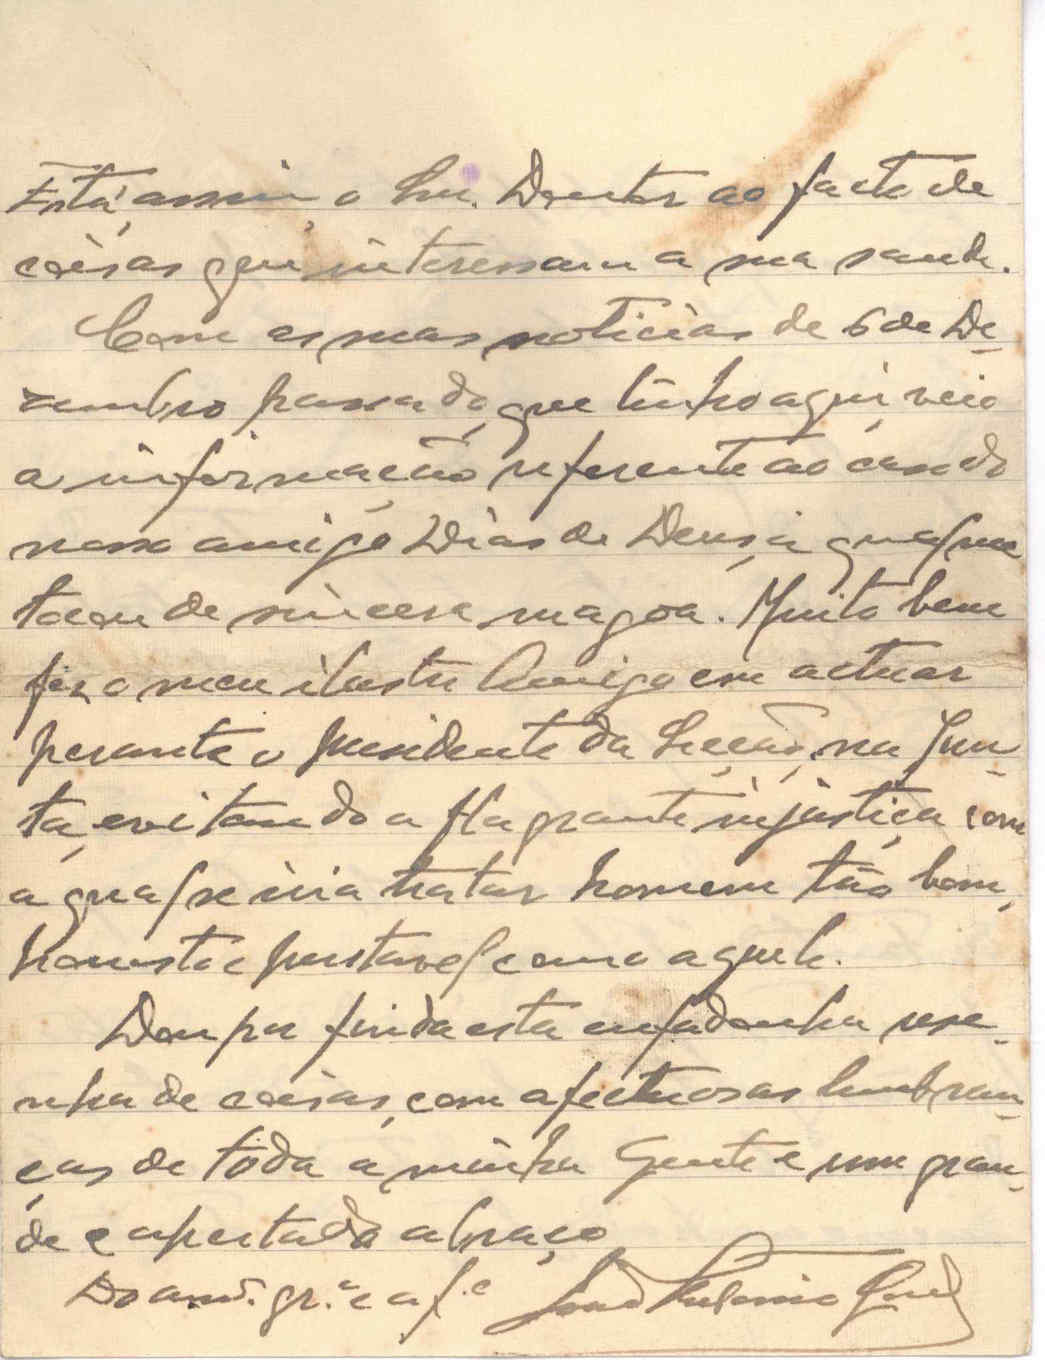 Está, assim, o Snr. Doutor ao facto de
coisas que interessam a sua saude.
Com as suas noticias de 6 de De-
zembro passado, que tinho aqui, veio
a informação referente ao caso do
nosso amigo Dias de Deus, a qual me
tocou de sincera magoa. Muito bem
fez o meu ilustre Amigo em actuar
perante o Presidente da Secção, na Jun-
ta, evitando a flagrante injustiça com
a qual se iria tratar homem tão bom,
honesto e prestavel como aquele.
Dou por finda esta enfadonha rese-
nha de coisas, com afectuosas lembran-
ças de toda a minha Gente e um gran-
de e apertado abraço
Do amº. gr.ᵉ e af.ᵒ